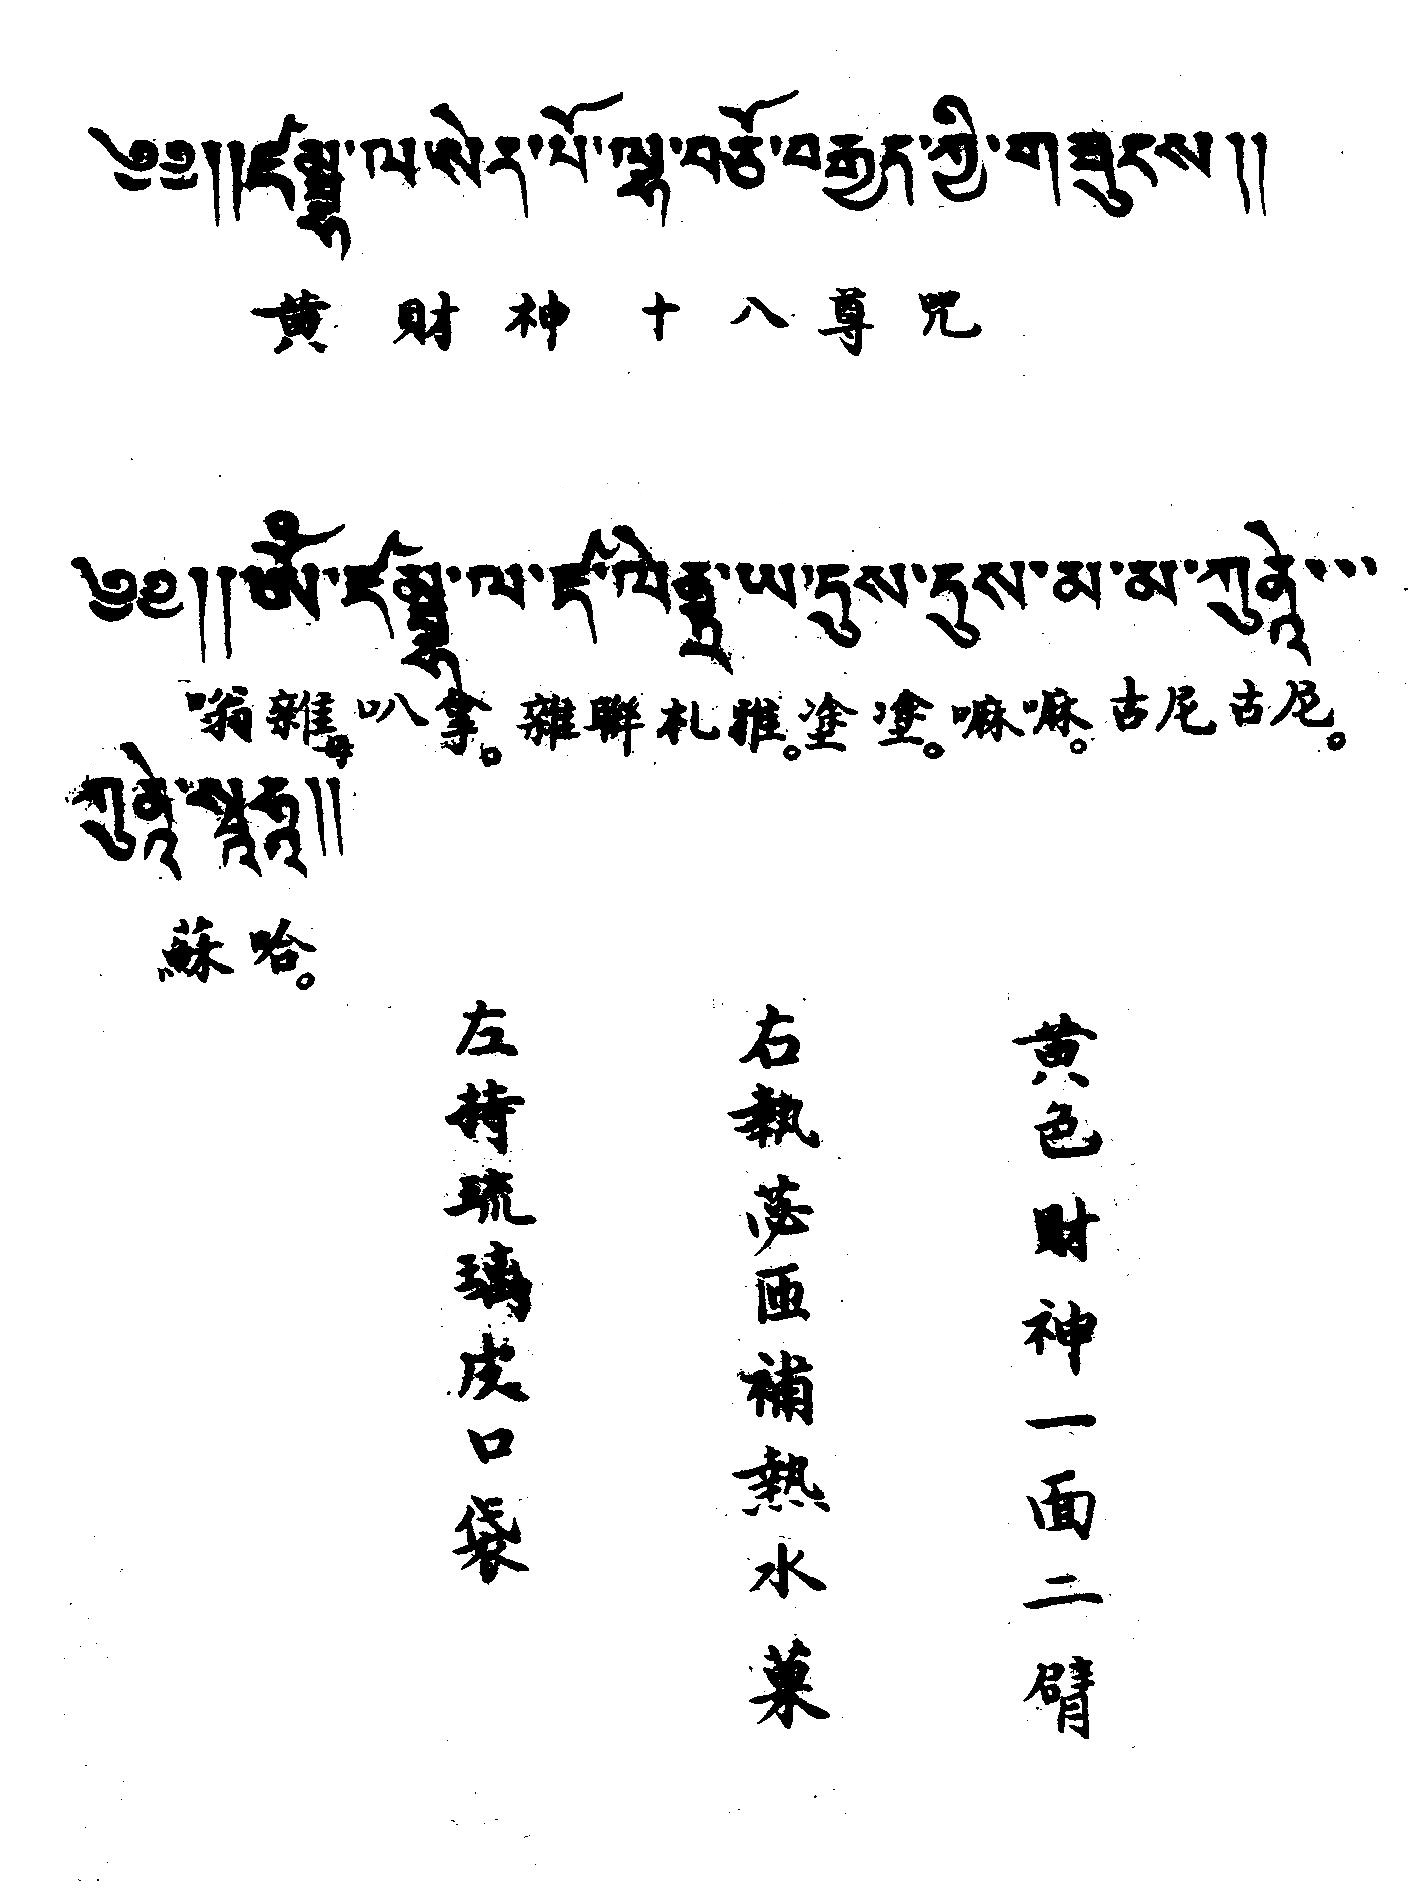 ༄༅།།ཛམྦྷ་ལ་སེར་པོ་ལྷ་བཅོ་བརྒྱད་ཀྱི་གཟུངས།།
黄財神十八尊咒
༄༅།།ཨོཾ་ཛམྦྷ་ལ་ཛ་ལེནྡྲ་ཡ་དུས་དུས་མ་མ་ཀུནེ་་་
嗡雜母叭拿。雜聯札雅。塗塗。嘛嘛。古尼古尼。
ཀུནེ་སྭཱཧཱ།།
蘇哈。
黄色財神一面二臂
右執匝補熱水菓
左持琉璃皮口袋